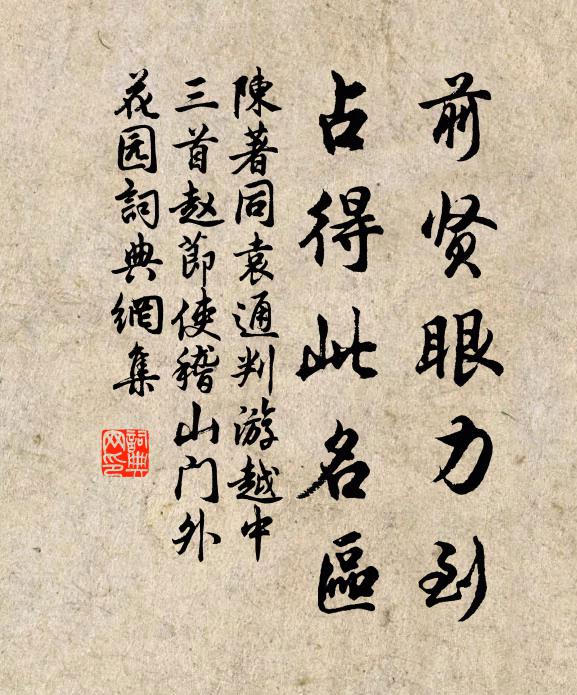 前贤眼力到
占得此名區
陳著同袁通判游越中
三首赵節使稽山门外
花园詞典網集
詞典
网印